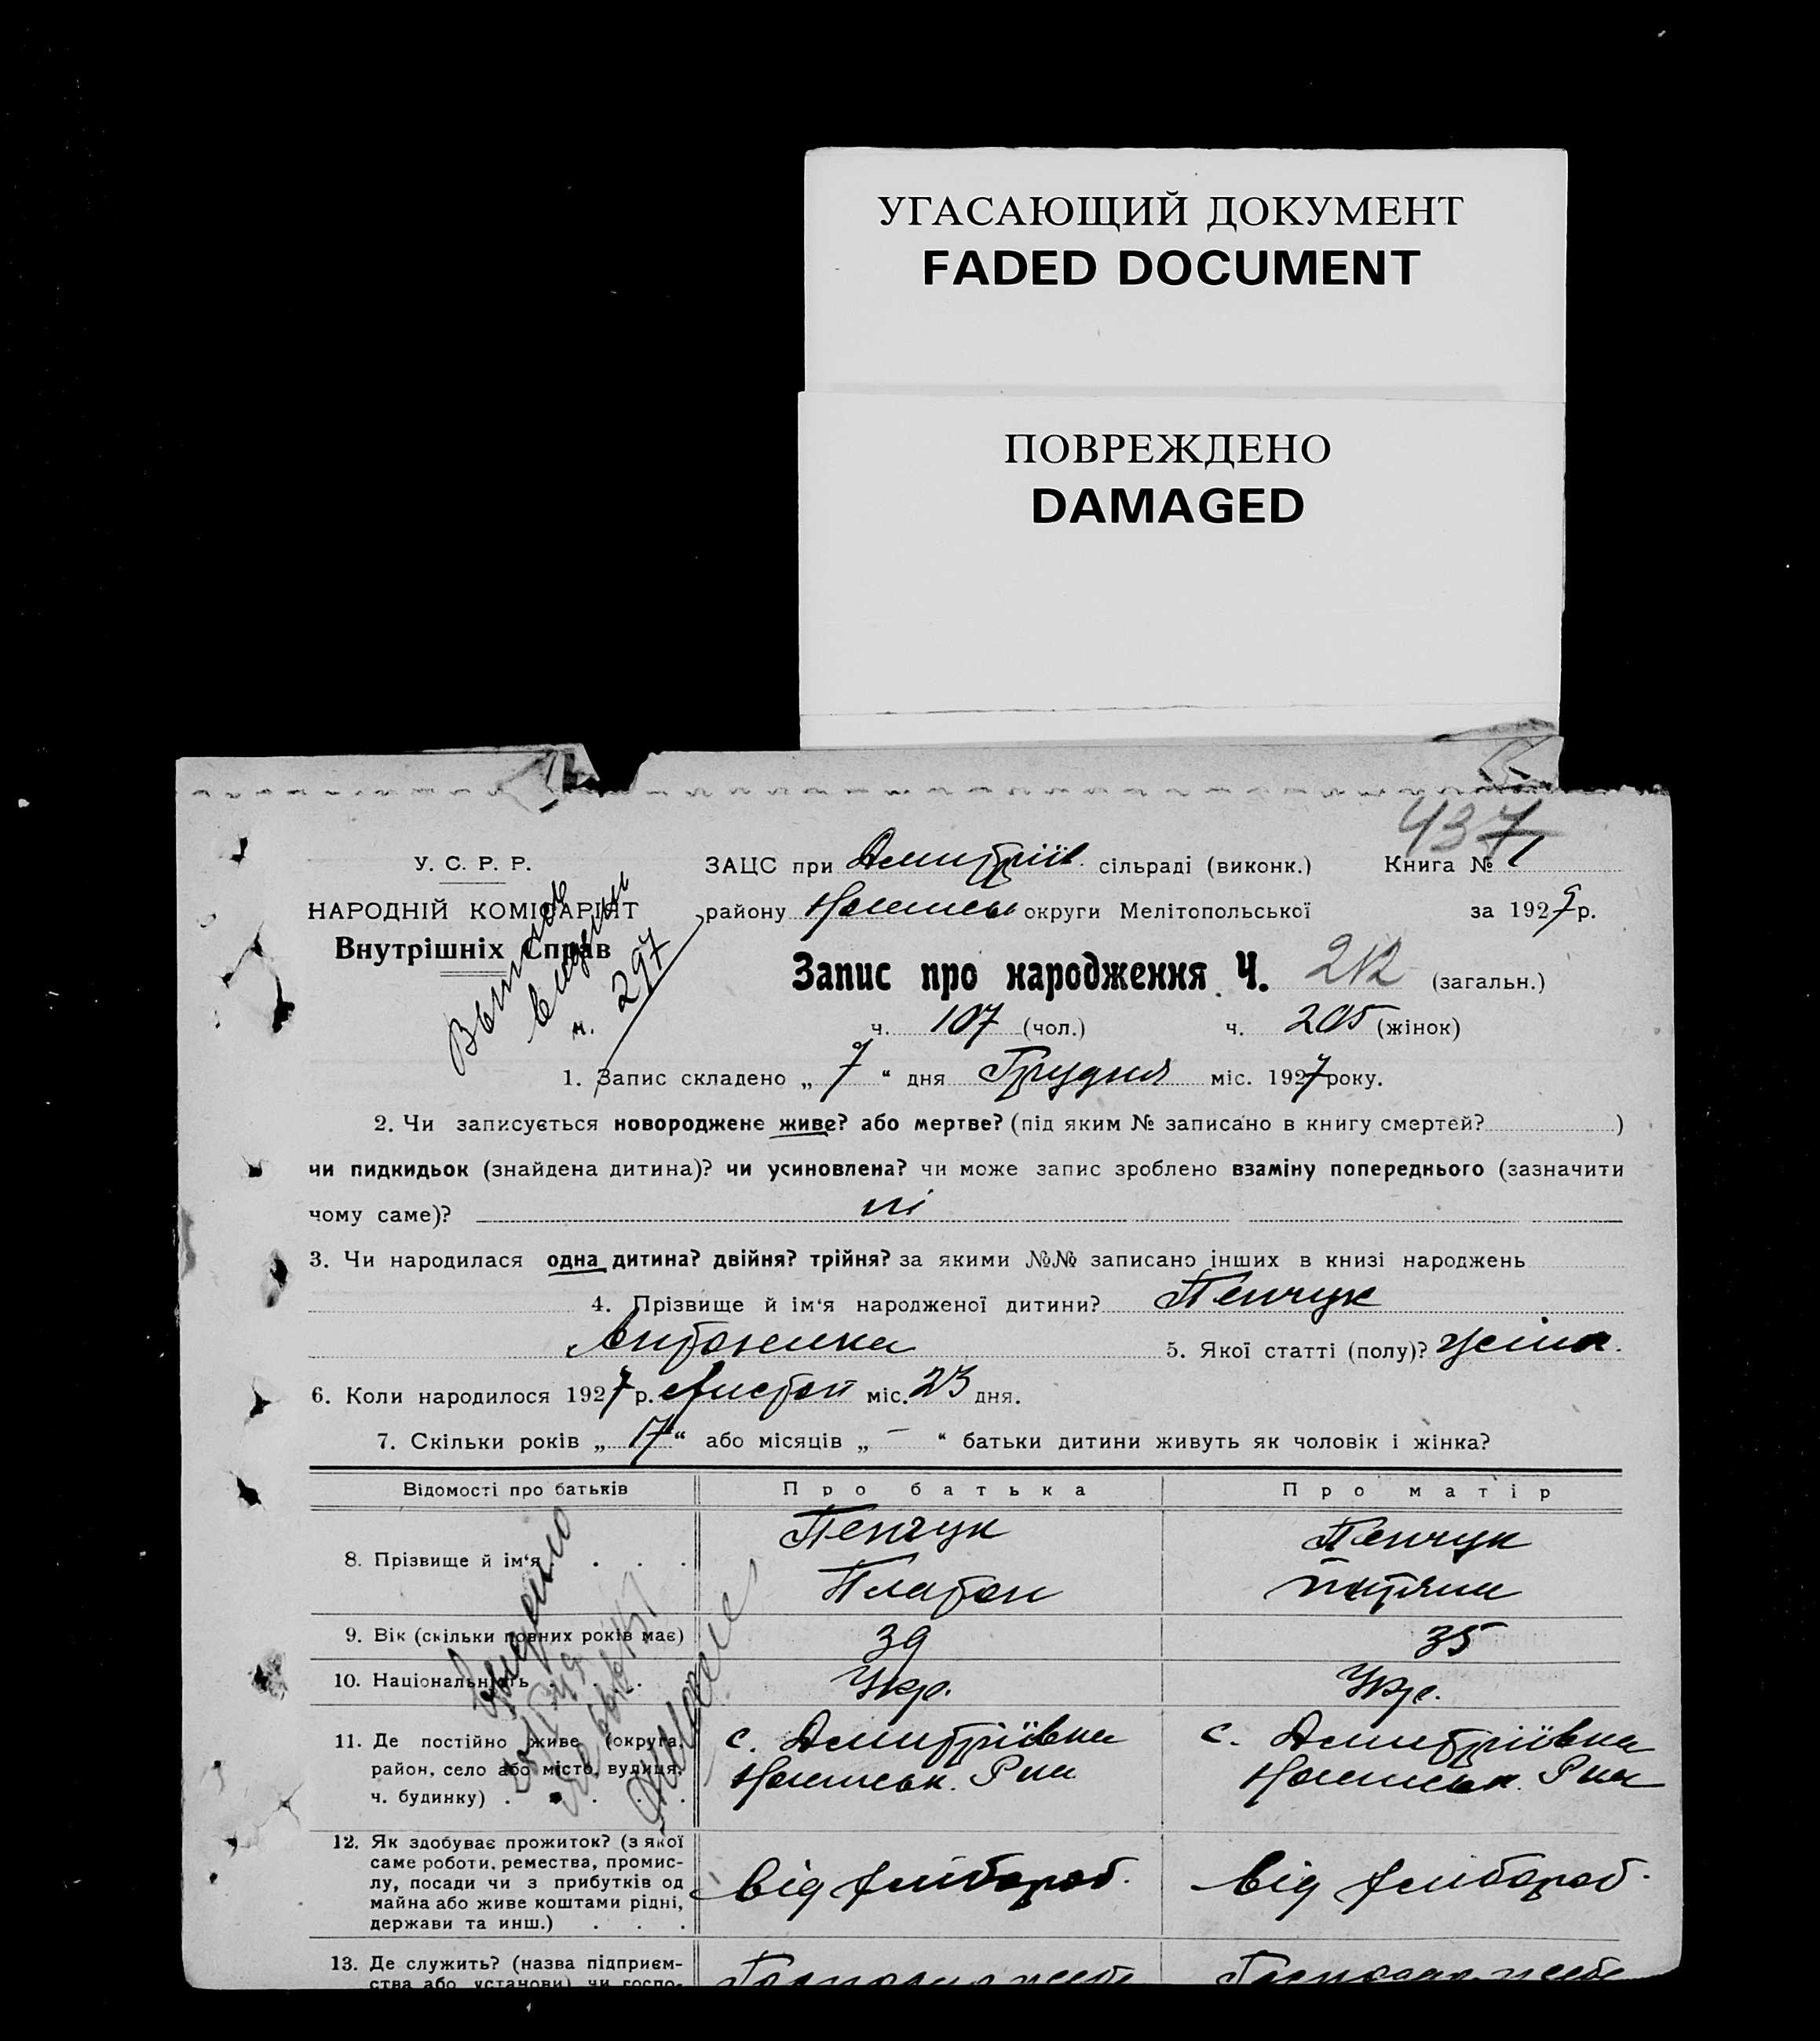 УГАСАЮЩИЙ ДОКУМЕНТ
FADED DOCUMENT
ПОВРЕЖДЕНО
DAMAGED
437
У. С. Р. Р.
ЗАЦС при Дмитріїв. сільраді (виконк.) Книга № 1
НАРОДНІЙ КОМІСАРІЯТ
району округи Мелітопольської за 1927 р.
Внутрішніх Справ
н. 297
Запис про народження Ч. 212 (загальн.)
ч. 107 (чол.) ч. 205 (жінок)
1. Запис складено „ 7 “ дня Грудня міс. 1927 року.
2. Чи записується новороджене живе? або мертве? (під яким № записано в книгу смертей? )
чи пидкидьок (знайдена дитина)? чи усиновлена? чи може запис зроблено взаміну попереднього (зазначити
чому саме)? ні
3. Чи народилася одна дитина? двійня? трійня? за якими №№ записано інших в книзі народжень
4. Прізвище й ім‘я народженої дитини? Пенчук
Антонина 5. Якої статті (полу)?
6. Коли народилося 1927 р. Листоп міс. 23 дня.
7. Скільки років „ 17 “ або місяців „ — “ батьки дитини живуть як чоловік і жінка?
Відомості про батьків Про батька Про матір
8. Прізвище й ім‘я . . . Пенчук Пенчук
Платон
9. Вік (скільки повних років має) 39 35
10. Національність . . . Укр. Укр.
11. Де постійно живе (округа, с. Дмитріївка с. Дмитріївка
район, село або місто, вулиця,
ч. будинку) . . . .
12. Як здобуває прожиток? (з якої
саме роботи, ремества, промис-
лу, посади чи з прибутків од
майна або живе коштами рідні, від хлібороб. від хлібороб.
держави та инш.) . . .
13. Де служить? (назва підприєм-
ства або установи) чи госпо-